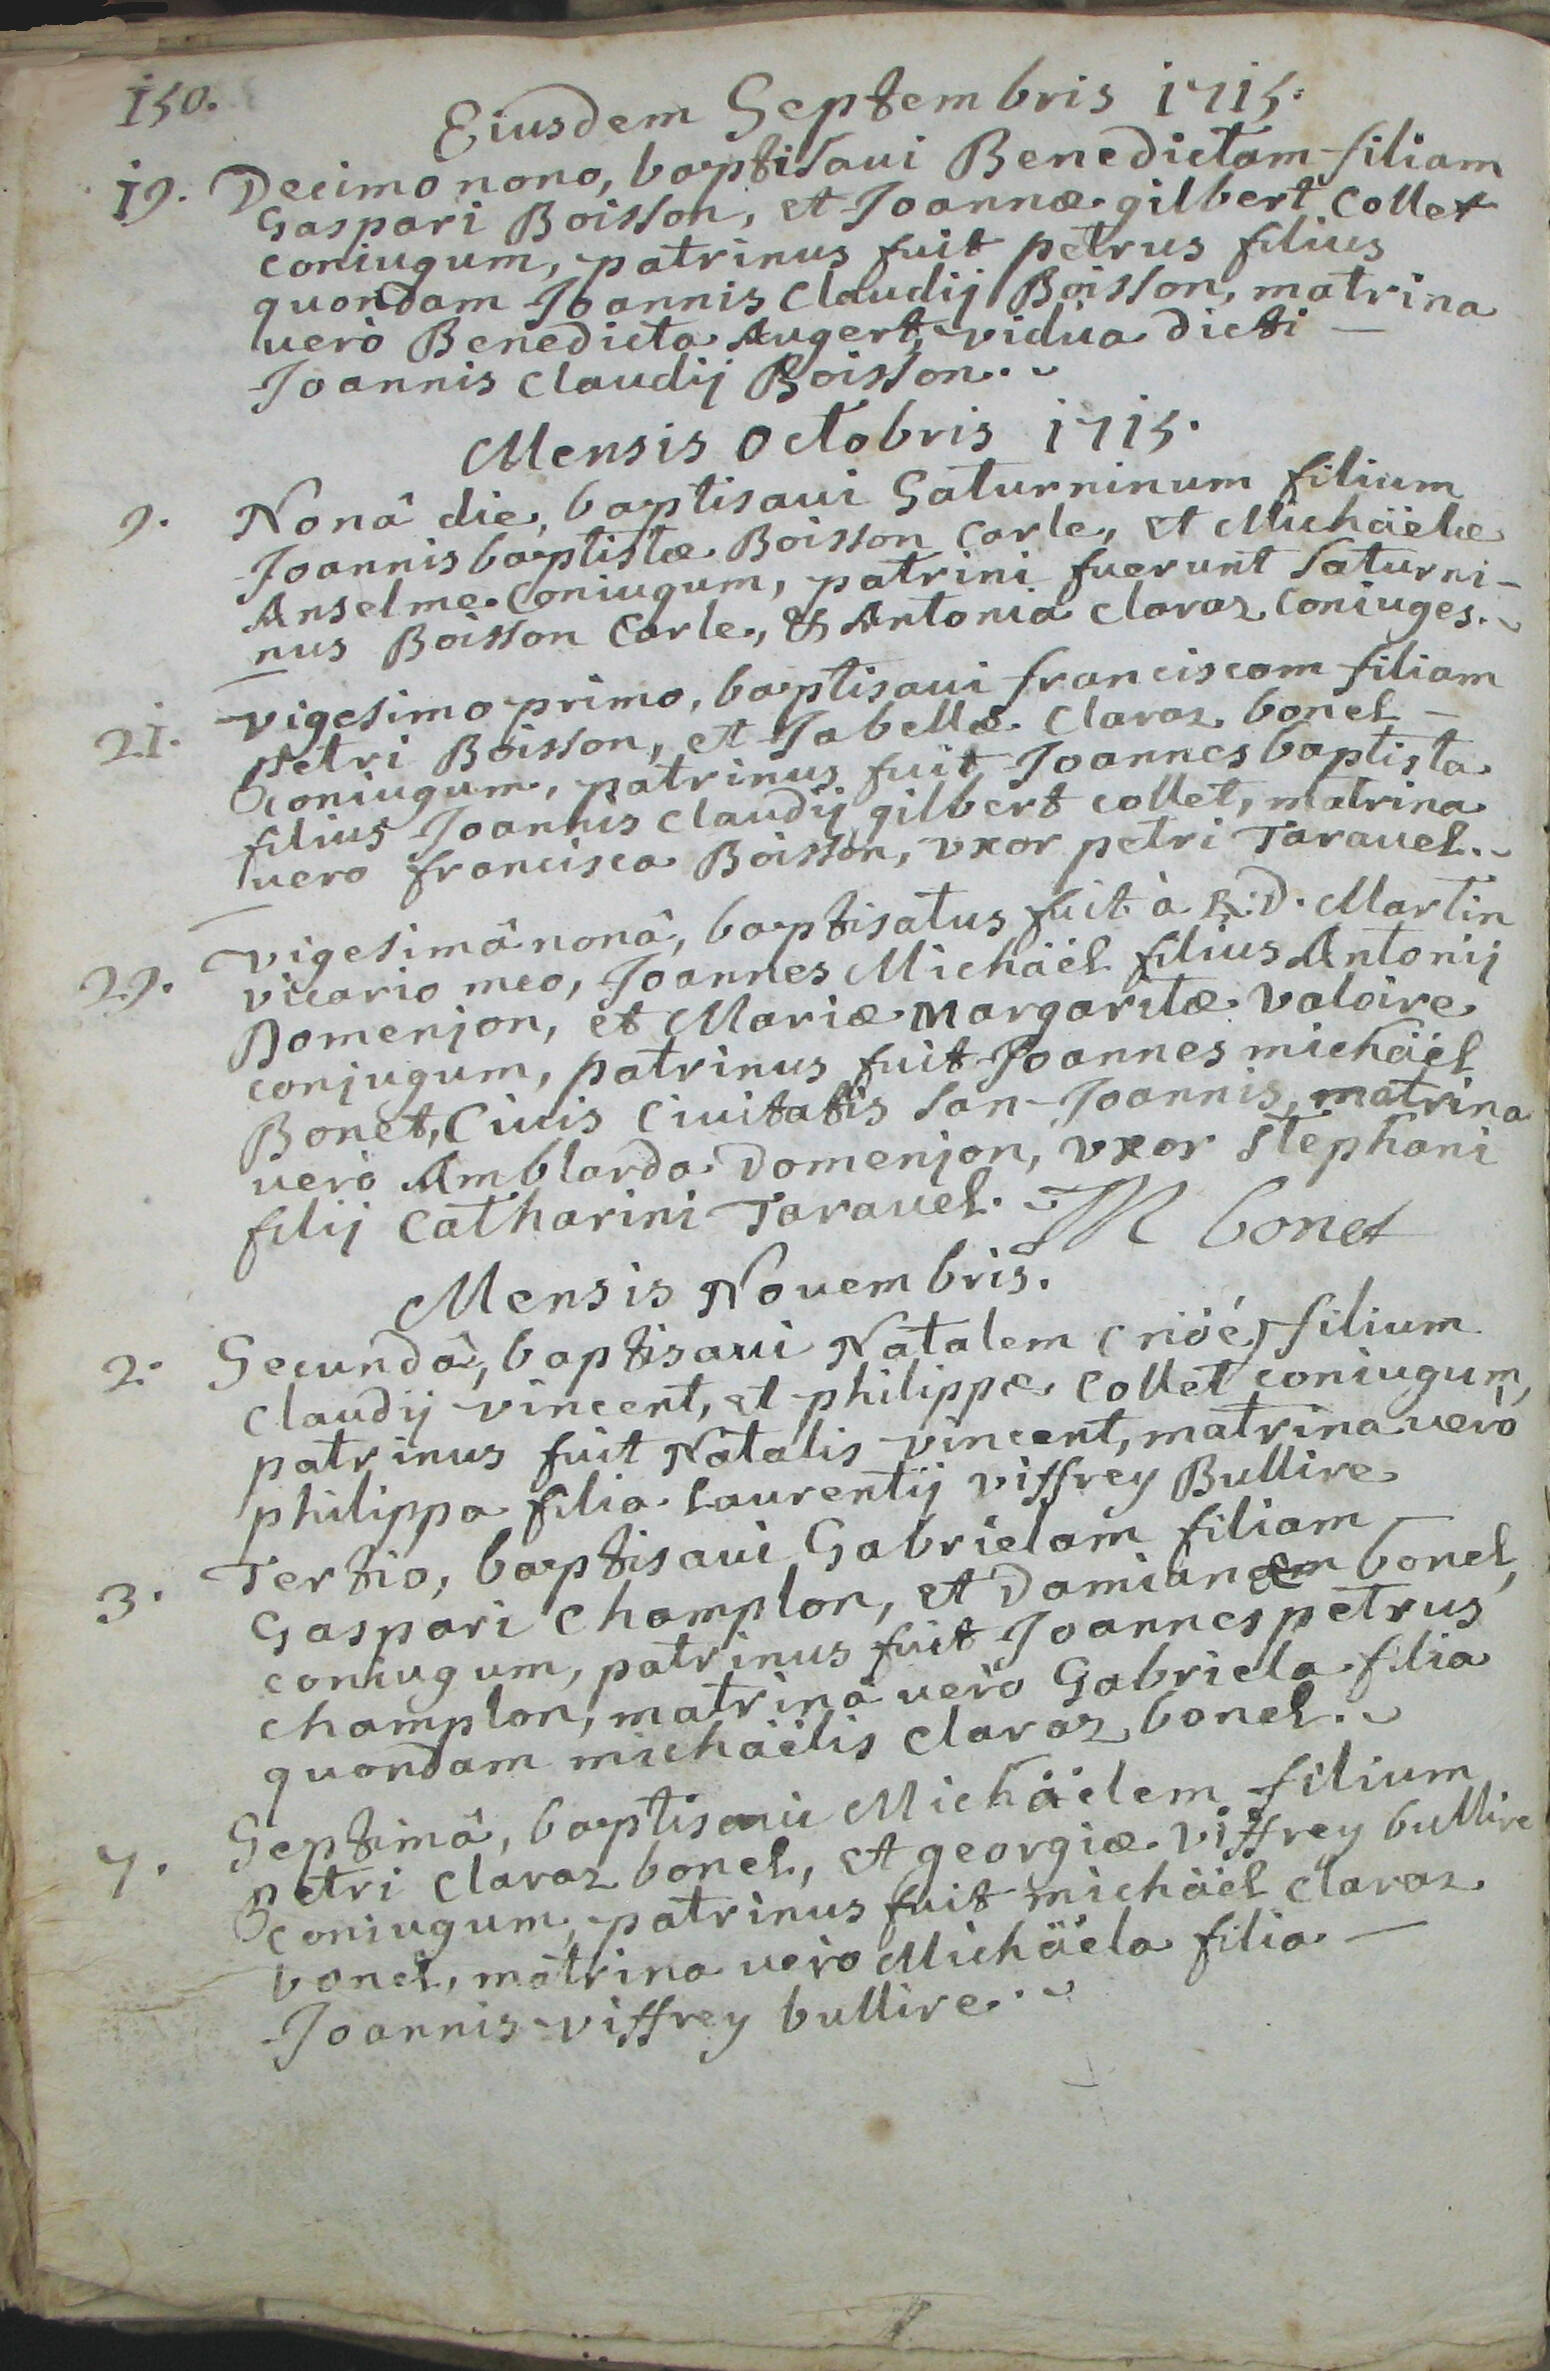 150.
Eiusdem Septembris 1715.
19. Decimo nono, baptisaui Benedictam filiam
Gaspari Boisson, et Joannæ gilbert Collet
coniugum, patrinus fuit petrus filius
quondam Joannis Claudij Boisson, matrina
uerò Benedicta Augert, vidua dicti —
Joannis Claudij Boisson.
Mensis Octobris 1715.
9. Nonâ die, baptisaui Saturninum filium
Joannisbaptistæ Boisson Carle, et Michäelæ
Anselme coniugum, patrini fuerunt Saturni-
nus Boisson Carle, & Antonia Claraz coniuges.
21. vigesimo primo, baptisaui franciscam filiam
petri Boisson, et Jabellæ Claraz bonel —
coniugum, patrinus fuit Joannes baptista
filius Joannis Claudij gilbert collet, matrina
uero francisca Boisson, vxor petri Tarauel.
29. vigesimâ nonâ, baptisatus fuit à R:D. Martin
vicario meo, Joannes Michäël filius Antonij
Domenjon, et Mariæ Margaritæ Valoire
conjugum, patrinus fuit Joannes michäël
Bonet, Ciuis Ciuitatis San-Joannis, matrina
uerò Amblarda Domenjon, vxor Stephani
filij Catharini Tarauel. M bonet
Mensis Nouembris.
2. Secundâ, baptisaui Natalem (nöé) filium
Claudij vincent, et philippæ Collet coniugum,
patrinus fuit Natalis vincent, matrina uerò
philippa filia Laurentij viffrey Bullire
3. Tertio, baptisaui Gabrielam filiam —
Gaspari Champlon, et Damianæm bonel,
coniugum, patrinus fuit Joannes petrus
champlon, matrina uerò Gabriela filia
quondam michäëlis Claraz bonel.
7. Septimâ, baptisaui Michäëlem filium
petri Claraz bonel, et georgiæ viffrey bullire
coniugum, patrinus fuit michäël Claraz
bonel, matrina uerò Michäëla filia —
Joannis viffrey bullire.